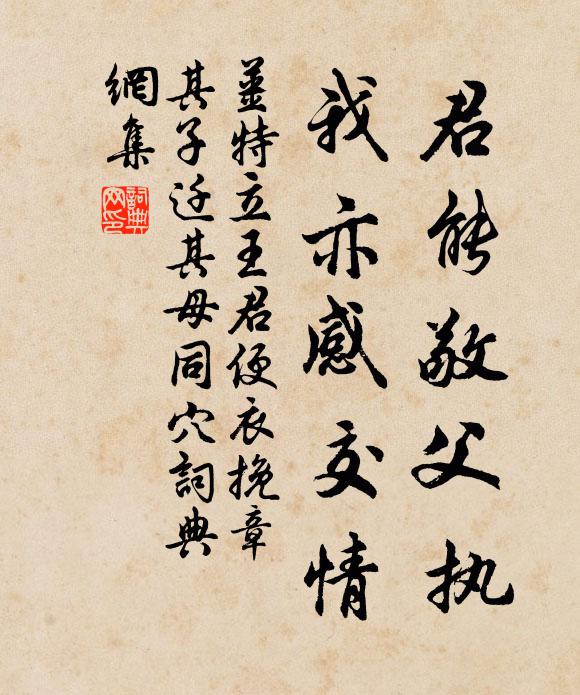 君能敬父执
我亦感交情
姜特立王君便衣挽章
其子迁其母同穴詞典
網集
詞典
网印